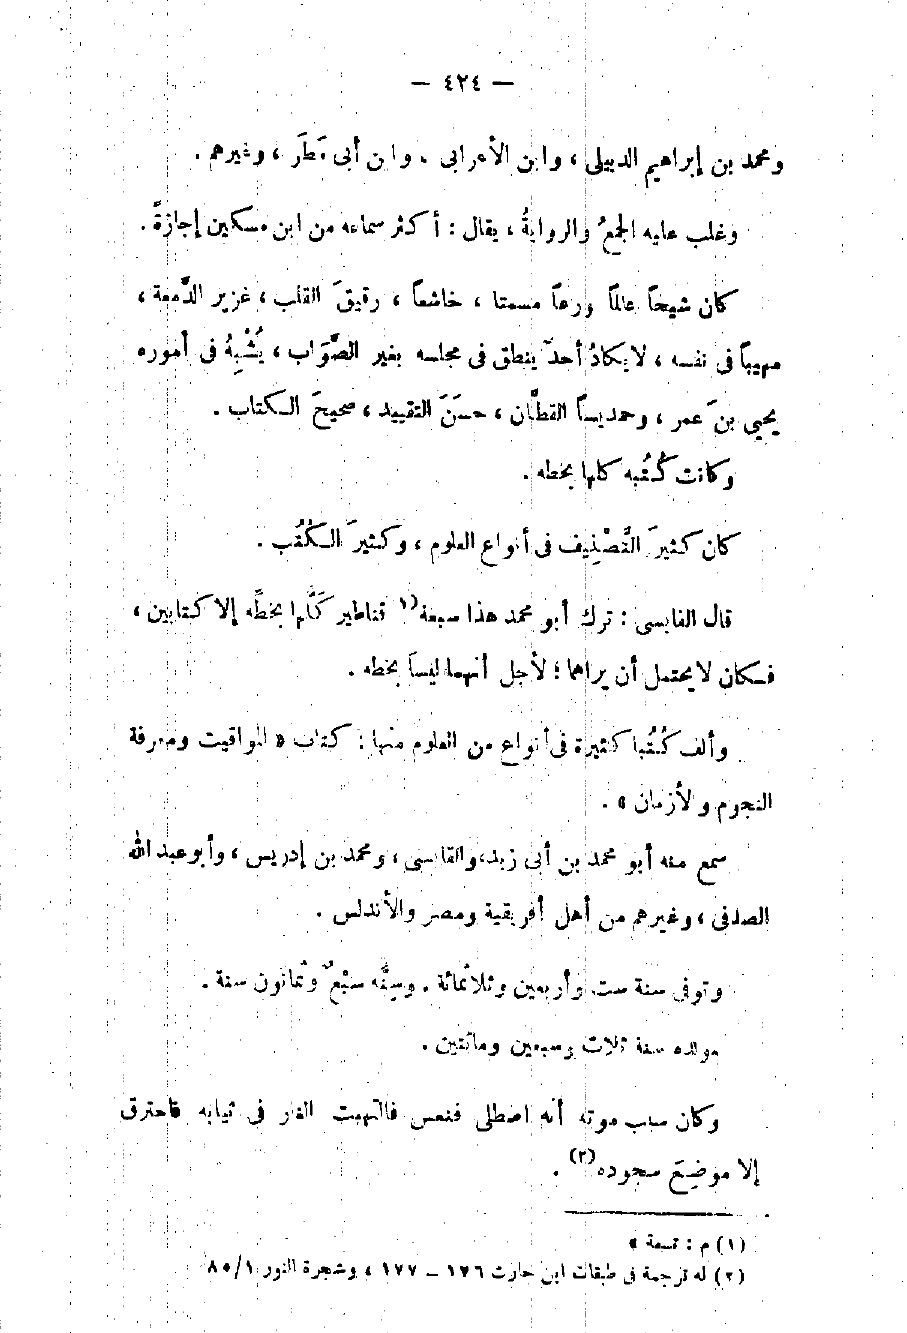 — ٤٢٤ —
ومحمد بن إبراهيم الدبيلى ، وابن الأعرابى ، وابن أبى مَطَر ، وغيرهم .
وغلب عليه الجمعُ والروايةُ ، يقال : أكثر سماعه من ابن مسكين إجازةً .
كان شيخاً عالماً ورعاً مسمتا ، خاشعاً ، رقيقَ القلب ، غزير الدَّمعة ،
مهيباً فى نفسه ، لا يكادُ أحدٌ ينطق فى مجلسه بغير الصَّوَاب ، يُشْبِهُ فى أموره
يحيى بنَ عمر ، وحمديساً القطَّان ، حسَنَ التقييد ، صحيحَ الكتاب .
وكانت كُتُبه كلها بخطه .
كان كثيرَ التَّصْنِيف فى أنواع العلوم ، وكثيرَ الكُتُب .
قال القابسى : ترك أبو محمد هذا سبعة(١) قناطير كلَّها بخطِّه إلا كتابين ،
فكان لا يحتمل أن يراهما ؛ لأجل أنهما ليسا بخطه .
وألف كُتُبا كثيرة فى أنواع من العلوم منها : كتاب « المواقيت ومعرفة
النجوم والأزمان » .
سمع منه أبو محمد بن أبى زيد، والقابسى ، ومحمد بن إدريس ، وأبو عبد الله
الصدفى ، وغيرهم من أهل أفريقية ومصر والأندلس .
وتوفى سنة ست وأربعين وثلاثمائة . وسِنُّه سبْعٌ وثمانون سنة .
مولده سنة ثلاث وسبعين ومائتين .
وكان سبب موته أنه اصطلى فنعس فالتهبت النار فى ثيابه فاحترق
إلا موضِعَ سجوده(٢) .
(١) م : تسعة »
(٢) له ترجمة فى طبقات ابن حارث ١٧٦ – ١٧٧ ، وشجرة النور ٨٥/١